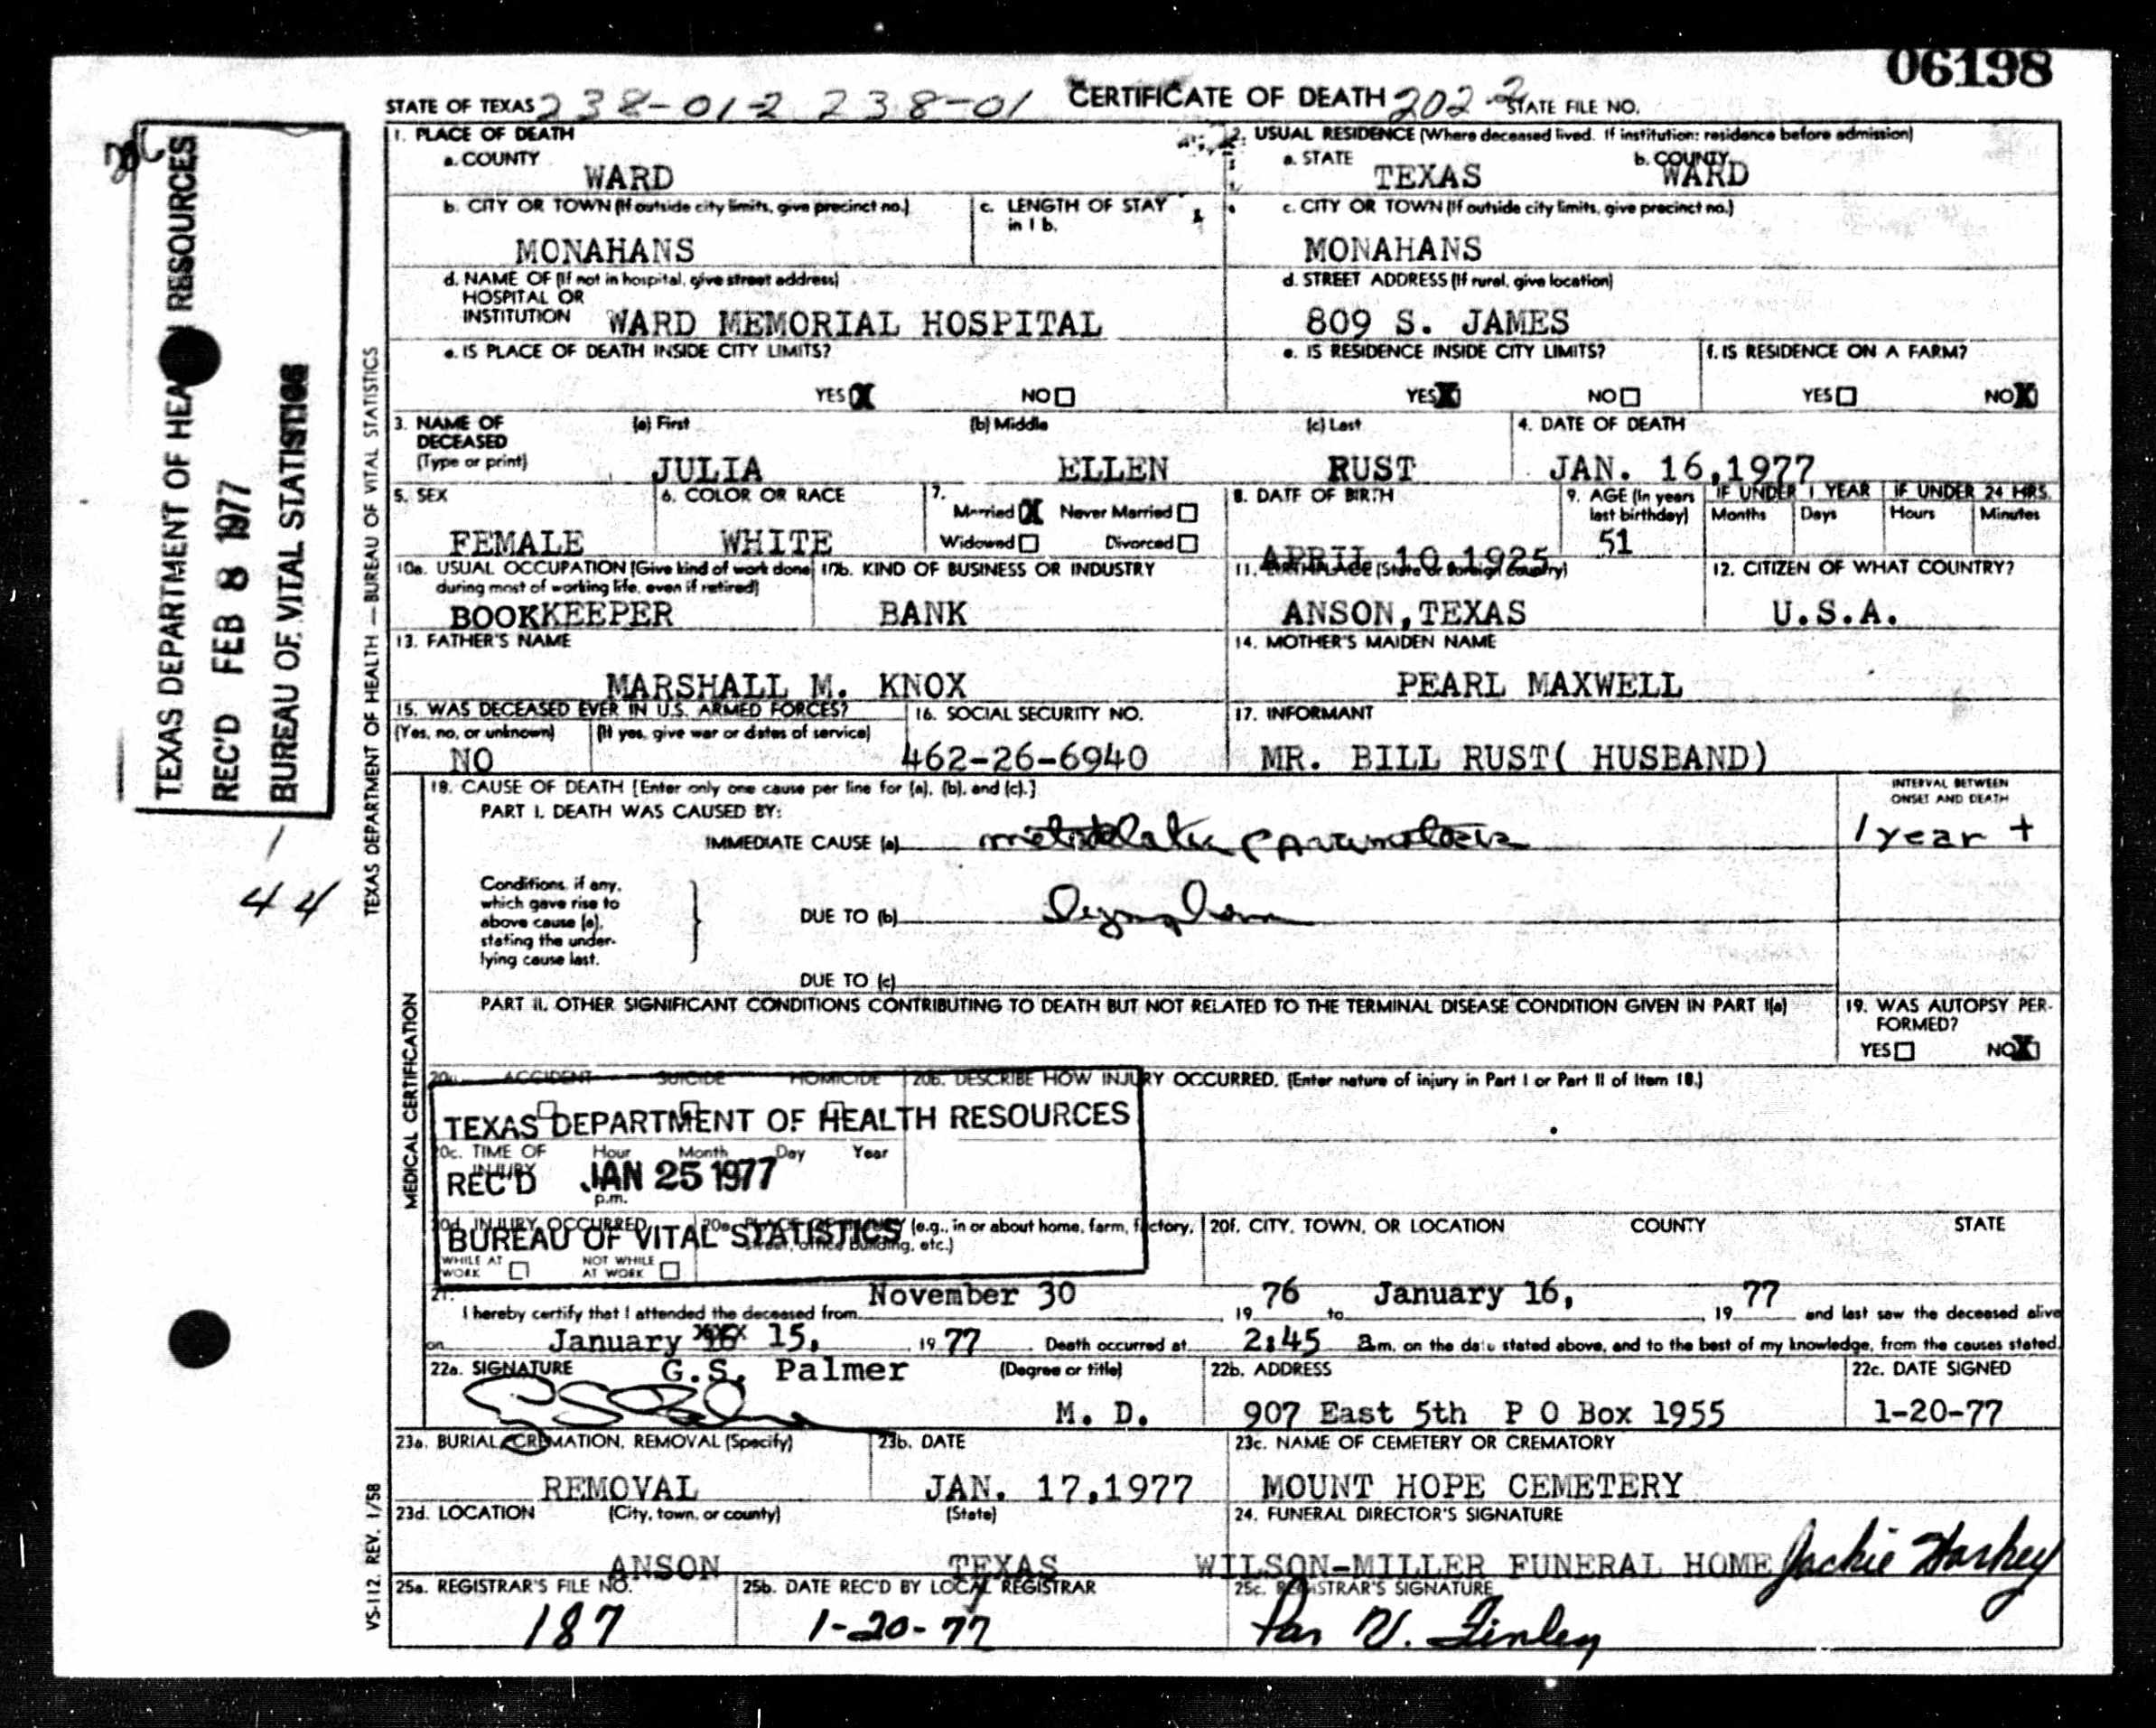 06198
STATE OF TEXAS 238-01-2 238-01 CERTIFICATE OF DEATH 202-2 STATE FILE NO.
1. PLACE OF DEATH
a. COUNTY
WARD
2. USUAL RESIDENCE (Where deceased lived. If institution: residence before admission)
a. STATE b. COUNTY
TEXAS WARD
b. CITY OR TOWN (If outside city limits, give precinct no.)
MONAHANS
c. LENGTH OF STAY
in 1 b.
c. CITY OR TOWN (If outside city limits, give precinct no.)
MONAHANS
d. NAME OF (If not in hospital, give street address)
HOSPITAL OR
INSTITUTION WARD MEMORIAL HOSPITAL
d. STREET ADDRESS (If rural, give location)
809 S. JAMES
e. IS PLACE OF DEATH INSIDE CITY LIMITS?
YES X NO
e. IS RESIDENCE INSIDE CITY LIMITS?
YES X NO
f. IS RESIDENCE ON A FARM?
YES NO X
3. NAME OF
DECEASED
(Type or print)
(a) First (b) Middle (c) Last
JULIA ELLEN RUST
4. DATE OF DEATH
JAN. 16,1977
5. SEX
FEMALE
6. COLOR OR RACE
WHITE
7.
Married X Never Married
Widowed Divorced
8. DATE OF BIRTH
APRIL 10 1925
9. AGE (In years
last birthday)
51
IF UNDER 1 YEAR IF UNDER 24 HRS.
Months Days Hours Minutes
10a. USUAL OCCUPATION (Give kind of work done
during most of working life, even if retired)
BOOKKEEPER
10b. KIND OF BUSINESS OR INDUSTRY
BANK
11. BIRTHPLACE (State or foreign country)
ANSON,TEXAS
12. CITIZEN OF WHAT COUNTRY?
U.S.A.
13. FATHER'S NAME
MARSHALL M. KNOX
14. MOTHER'S MAIDEN NAME
PEARL MAXWELL
15. WAS DECEASED EVER IN U.S. ARMED FORCES?
(Yes, no, or unknown) (If yes, give war or dates of service)
NO
16. SOCIAL SECURITY NO.
462-26-6940
17. INFORMANT
MR. BILL RUST( HUSBAND)
18. CAUSE OF DEATH [Enter only one cause per line for (a), (b), and (c).]
PART I. DEATH WAS CAUSED BY:
IMMEDIATE CAUSE (a)
INTERVAL BETWEEN
ONSET AND DEATH
1 year +
Conditions, if any,
which gave rise to
above cause (a),
stating the under-
lying cause last.
DUE TO (b)
DUE TO (c)
PART II. OTHER SIGNIFICANT CONDITIONS CONTRIBUTING TO DEATH BUT NOT RELATED TO THE TERMINAL DISEASE CONDITION GIVEN IN PART I(a)
19. WAS AUTOPSY PER-
FORMED?
YES NO X
20a. ACCIDENT SUICIDE HOMICIDE
20b. DESCRIBE HOW INJURY OCCURRED. (Enter nature of injury in Part I or Part II of Item 18.)
TEXAS DEPARTMENT OF HEALTH RESOURCES
20c. TIME OF INJURY Hour Month Day Year
p.m.
REC'D JAN 25 1977
BUREAU OF VITAL STATISTICS
20d. INJURY OCCURRED
WHILE AT
WORK
NOT WHILE
AT WORK
20e. PLACE OF INJURY (e.g., in or about home, farm, factory,
street, office building, etc.)
20f. CITY, TOWN, OR LOCATION COUNTY STATE
21.
I hereby certify that I attended the deceased from November 30 1976 to January 16, 1977 and last saw the deceased alive
on January 15, 1977. Death occurred at 2:45 a.m. on the date stated above, and to the best of my knowledge, from the causes stated.
22a. SIGNATURE G.S. Palmer (Degree or title)
M. D.
22b. ADDRESS
907 East 5th P O Box 1955
22c. DATE SIGNED
1-20-77
23a. BURIAL, CREMATION, REMOVAL (Specify)
REMOVAL
23b. DATE
JAN. 17,1977
23c. NAME OF CEMETERY OR CREMATORY
MOUNT HOPE CEMETERY
23d. LOCATION (City, town, or county) (State)
ANSON TEXAS
24. FUNERAL DIRECTOR'S SIGNATURE
WILSON-MILLER FUNERAL HOME Jackie Harkey
25a. REGISTRAR'S FILE NO.
187
25b. DATE REC'D BY LOCAL REGISTRAR
1-20-77
25c. REGISTRAR'S SIGNATURE
V. Finley
TEXAS DEPARTMENT OF HEALTH RESOURCES
REC'D FEB 8 1977
BUREAU OF VITAL STATISTICS
44
TEXAS DEPARTMENT OF HEALTH — BUREAU OF VITAL STATISTICS
MEDICAL CERTIFICATION
VS-112. REV. 1/58